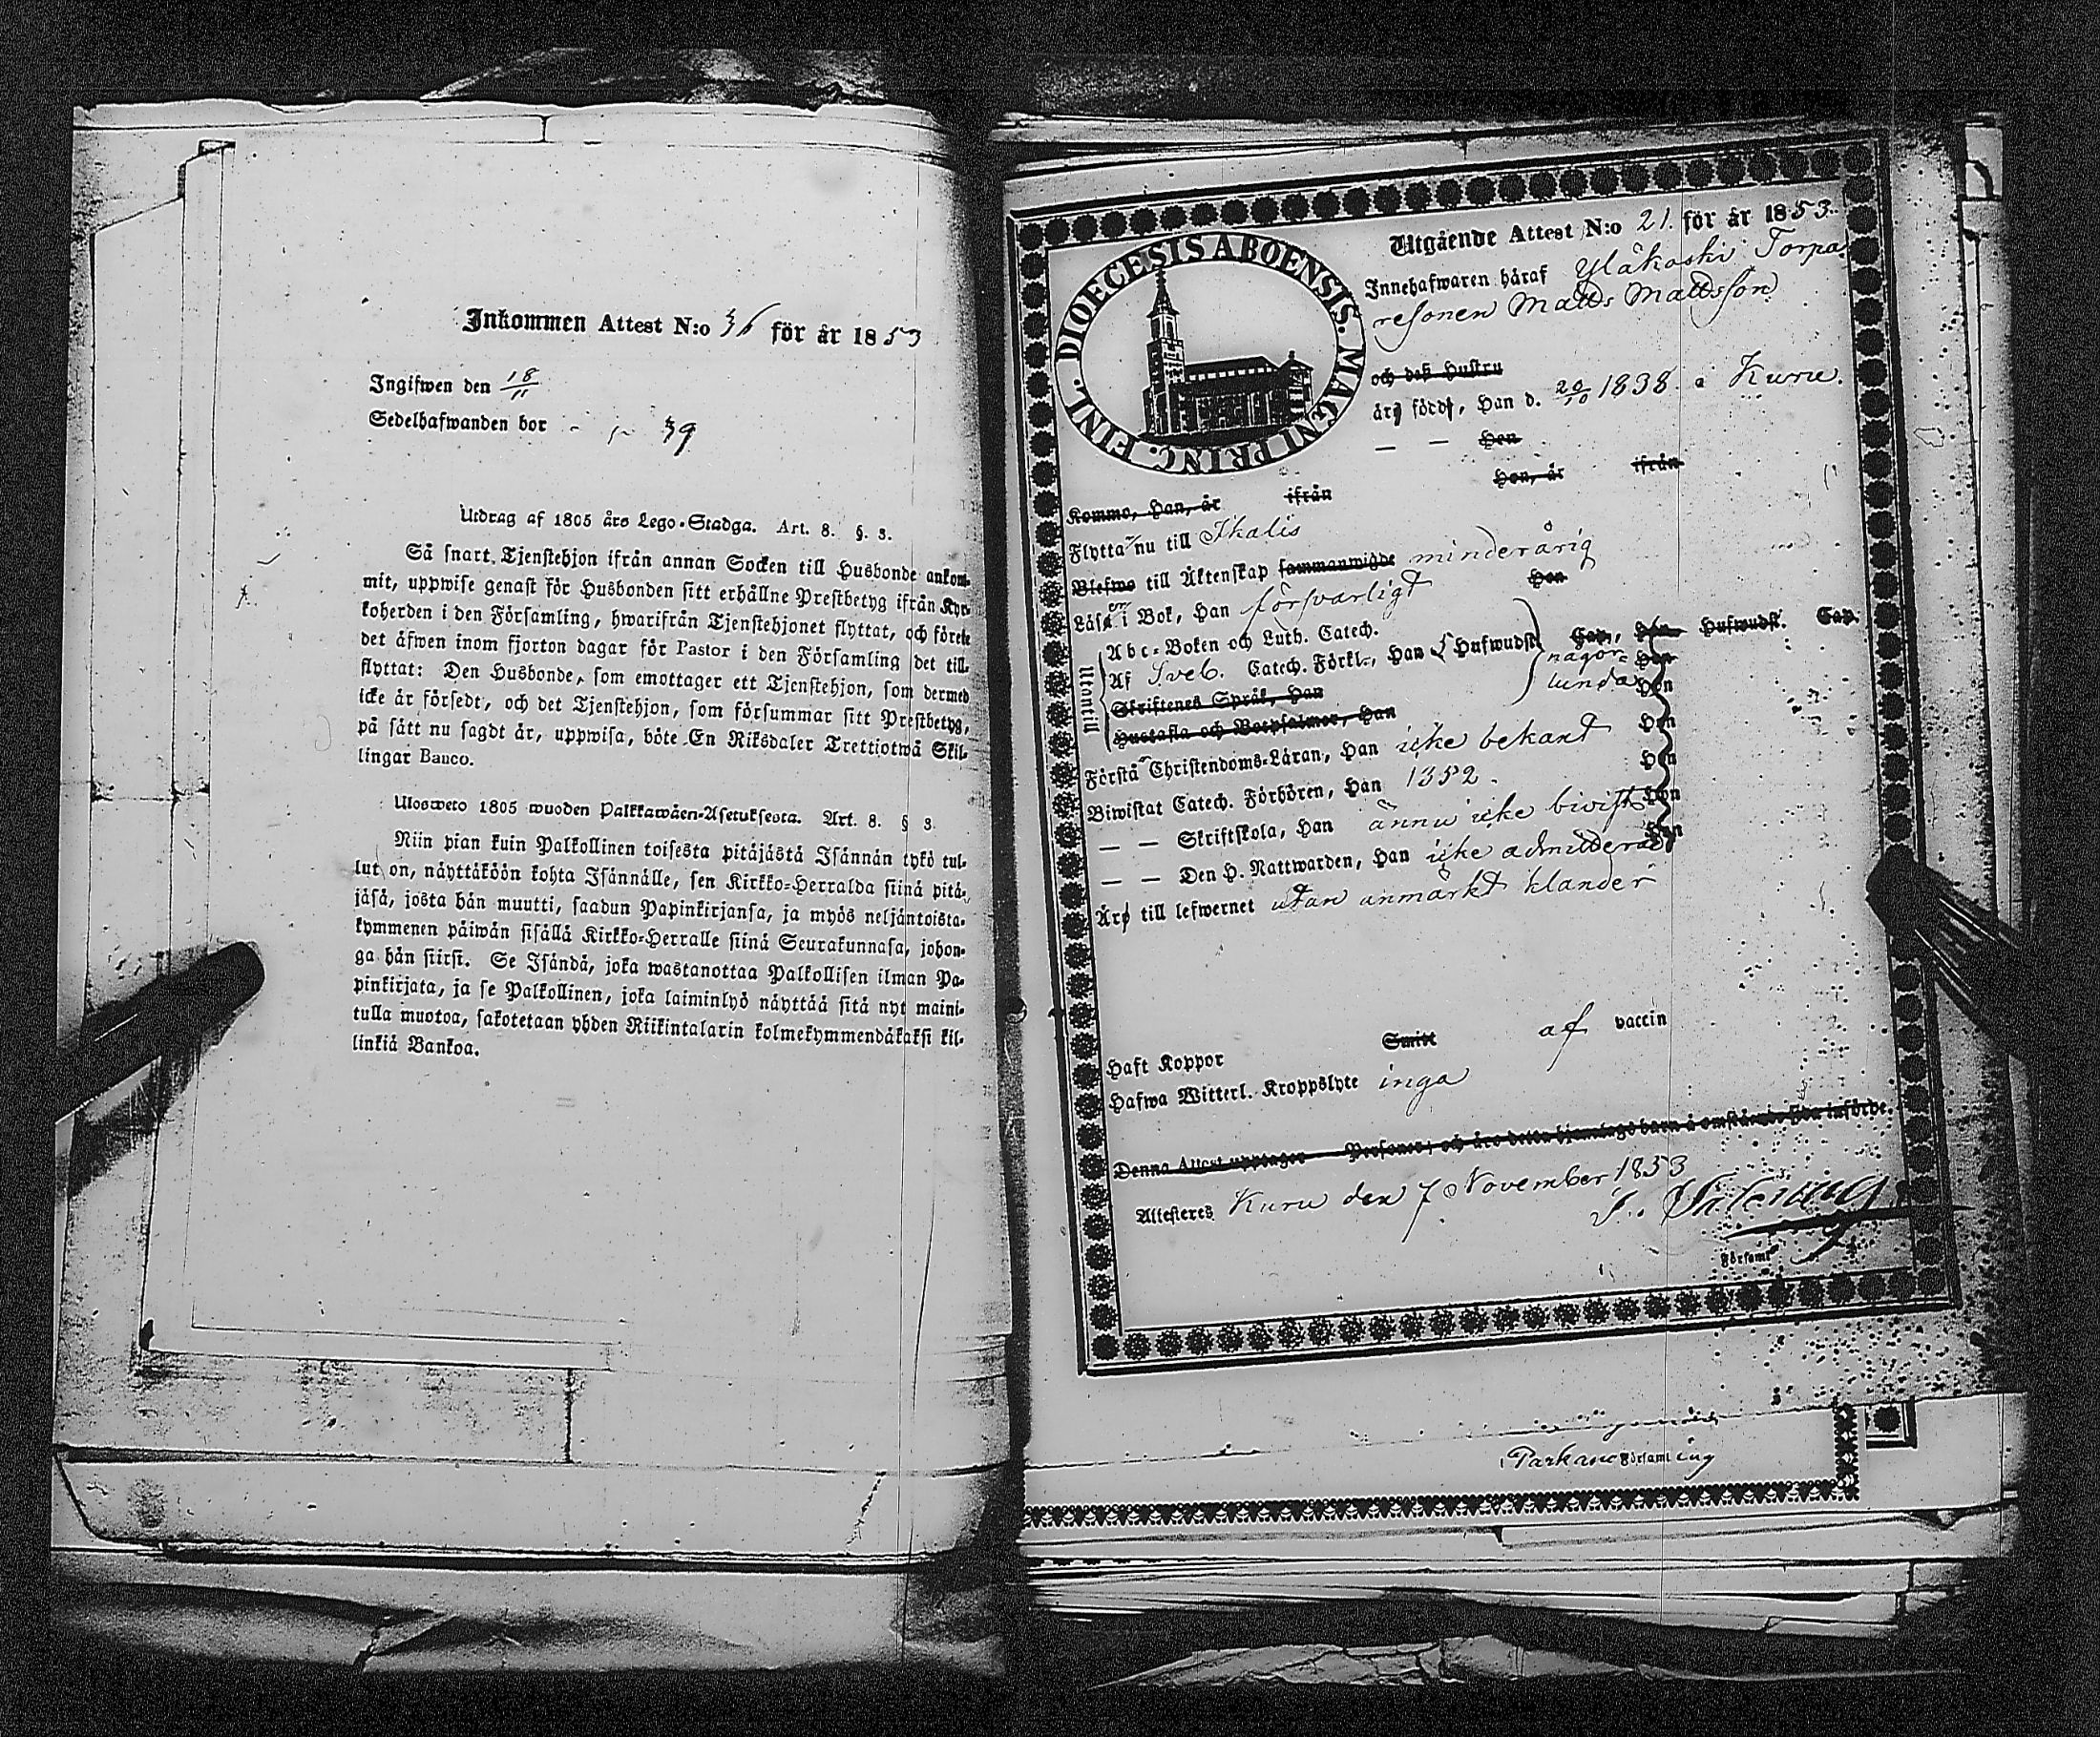 Inkommen Attest N:o 36 för år 1853
Ingifwen den 18/11
Sedelhafwanden bor - 39
Utdrag af 1805 års Lego-Stadga. Art. 8. §. 3.
Så snart Tjenstehjon ifrån annan Socken till Husbonde ankom-
mit, uppwise genast för Husbonden sitt erhållne Prestbetyg ifrån Kyr-
koherden i den Församling, hwarifrån Tjenstehjonet flyttat, och förete
det äfwen inom fjorton dagar för Pastor i den Församling det till-
flyttat: Den Husbonde, som emottager ett Tjenstehjon, som dermed
icke är försedt, och det Tjenstehjon, som försummar sitt Prestbetyg,
på sätt nu sagdt är, uppwisa, böte En Riksdaler Trettiotwå Skil-
lingar Banco.
Ulosweto 1805 wuoden Palkkawäen-Asetuksesta. Art. 8. § 3.
Niin pian kuin Palkollinen toisesta pitäjästä Isännän tykö tul-
lut on, näyttäköön kohta Isännälle, sen Kirkko-Herralda siinä pitä-
jäsä, josta hän muutti, saadun Papinkirjansa, ja myös neljäntoista-
kymmenen päiwän sisällä Kirkko-Herralle siinä Seurakunnasa, johon-
ga hän siirsi. Se Isändä, joka wastanottaa Palkollisen ilman Pa-
pinkirjata, ja se Palkollinen, joka laiminlyö näyttää sitä nyt maini-
tulla muotoa, sakotetaan yhden Riikintalarin kolmekymmendäkaksi kil-
linkiä Bankoa.
DIOECESIS ABOENSIS. MAGNI PRINC. FINL.
Utgående Attest N:o 21. för år 1853.
Innehafwaren häraf Yläkoski Torpa
resonen Matts Mattsson
och deß Hustru
äro född, Han d. 20/10 1838 i Kuru.
— — Hon
Kommo, Han, år ifrån Hon, år ifrån
Flytta nu till Ikalis
Blefwo till Äktenskap sammanwigde minderårig
Läsa i Bok, Han försvarligt Hon
Utantill
Abc-Boken och Luth. Catech.
Af Sveb. Catech. Förkl., Han Hufwudst. Cap., Hon Hufwudst. Cap.
någor-
lunda
Skriftenes Språk, Han Hon
Hustafla och Botpsalmer, Han Hon
Förstå Christendoms-Läran, Han icke bekant Hon
Biwistat Catech. Förhören, Han 1852. Hon
— — Skriftskola, Han ännu icke bivist Hon
— — Den H. Nattwarden, Han icke admitterad Hon
Äro till lefwernet utan anmärkt klander
Haft Koppor Smitt af vaccin
Hafwa Witterl. Kroppslyte inga
Denna Attest upptager Personer; och äro deras hemängsbarn å omstående sida införde.
Attesteres Kuru den 7 November 1853
Församl
Parkano Församling